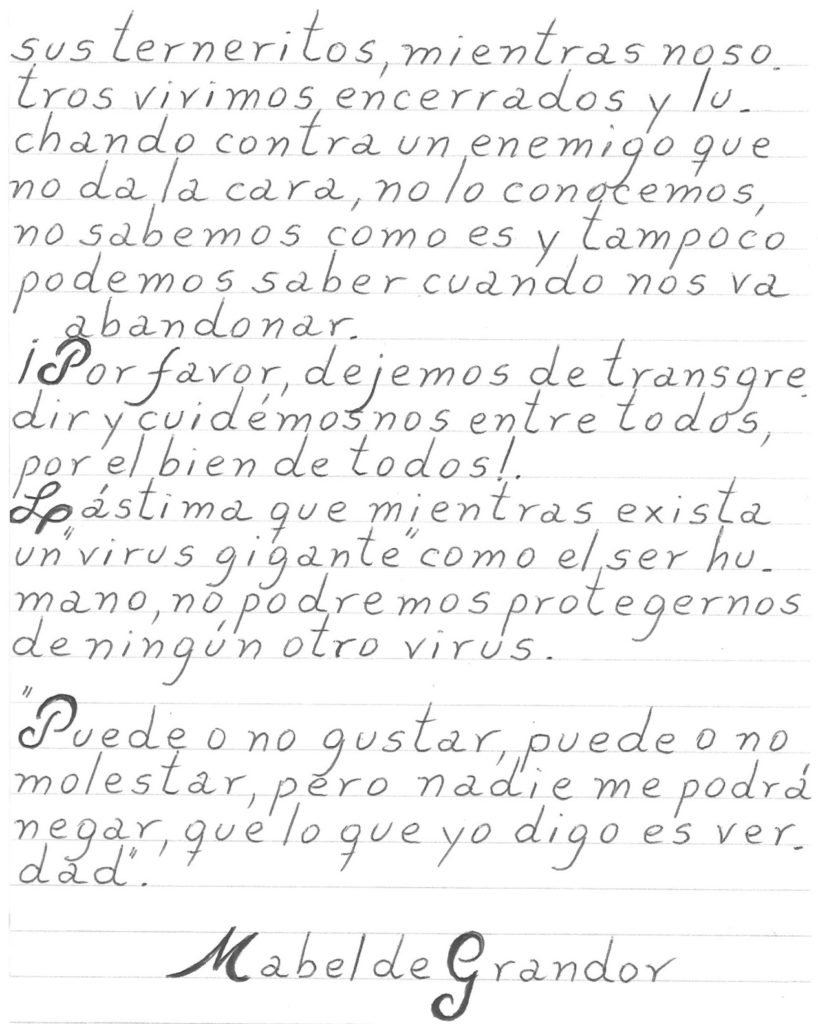 sus terneritos, mientras noso-
tros vivimos encerrados y lu-
chando contra un enemigo que
no da la cara, no lo conocemos,
no sabemos como es y tampoco
podemos saber cuando nos va
abandonar.
¡Por favor, dejemos de transgre-
dir y cuidémosnos entre todos,
por el bien de todos!.
Lástima que mientras exista
un "virus gigante" como el ser hu-
mano, no podremos protegernos
de ningún otro virus.
"Puede o no gustar, puede o no
molestar, pero nadie me podrá
negar, que lo que yo digo es ver-
dad".
Mabel de Grandor